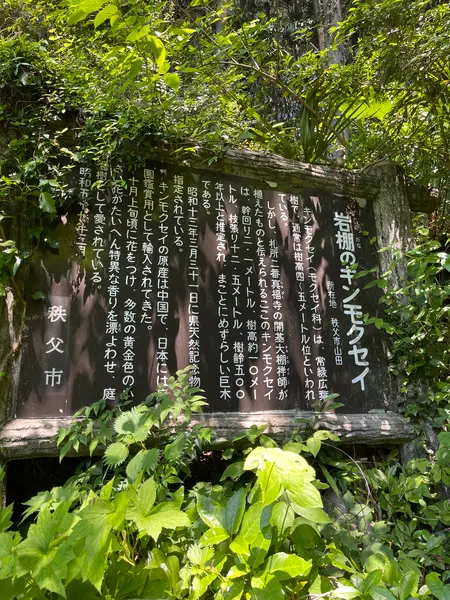 岩棚のキンモクセイ
所在地 秩父市山田
キンモクセイ(モクセイ科)は、常緑広葉
樹で、通常は樹高四〜五メートル位といわれ
ている。
しかし、札所二番真福寺の開基大棚禅師が
植えたものと伝えられるここのキンモクセイ
は、幹回り二・一メートル、樹高約一〇メー
トル、枝張り十二・五メートル、樹齢五〇〇
年以上と推定され、まことにめずらしい巨木
である。
昭和十三年三月三十一日に県天然記念物
指定されている。
キンモクセイの原産は中国で、日本には
園鑑賞用として輸入されてきた。
十月上旬頃に花をつけ、多数の黄金色の
さい花がたいへん特異な香りを漂よわせ、庭
樹として愛されている。
秩父市